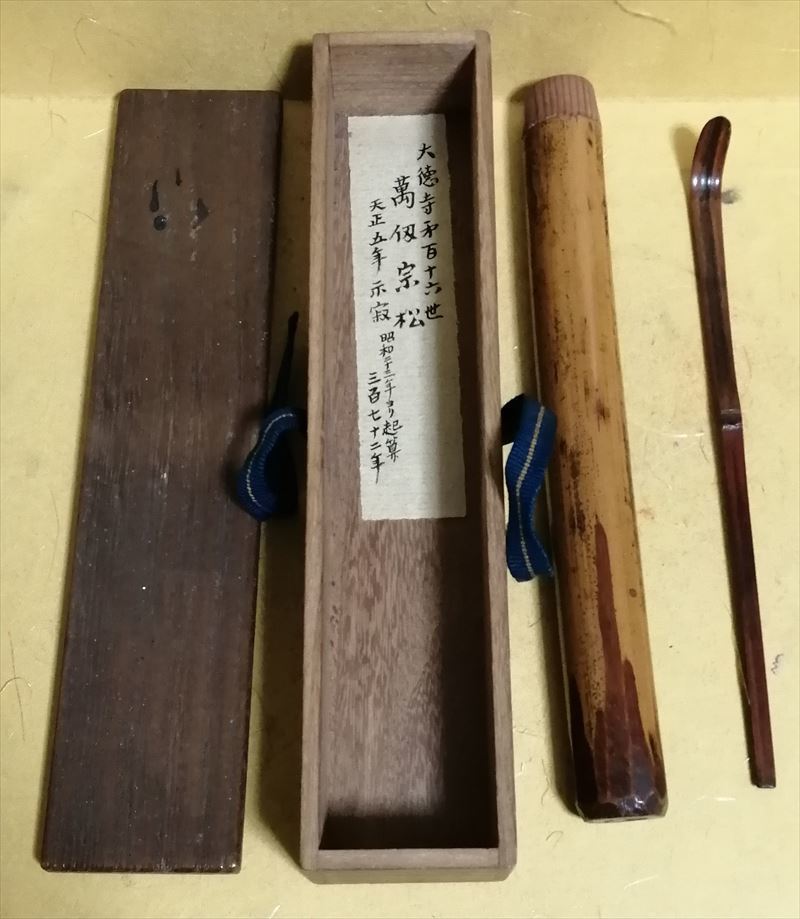 大徳寺第百十六世
萬仭宗松
天正五年 示寂
昭和二十三年ヨリ起算
三百七十二年